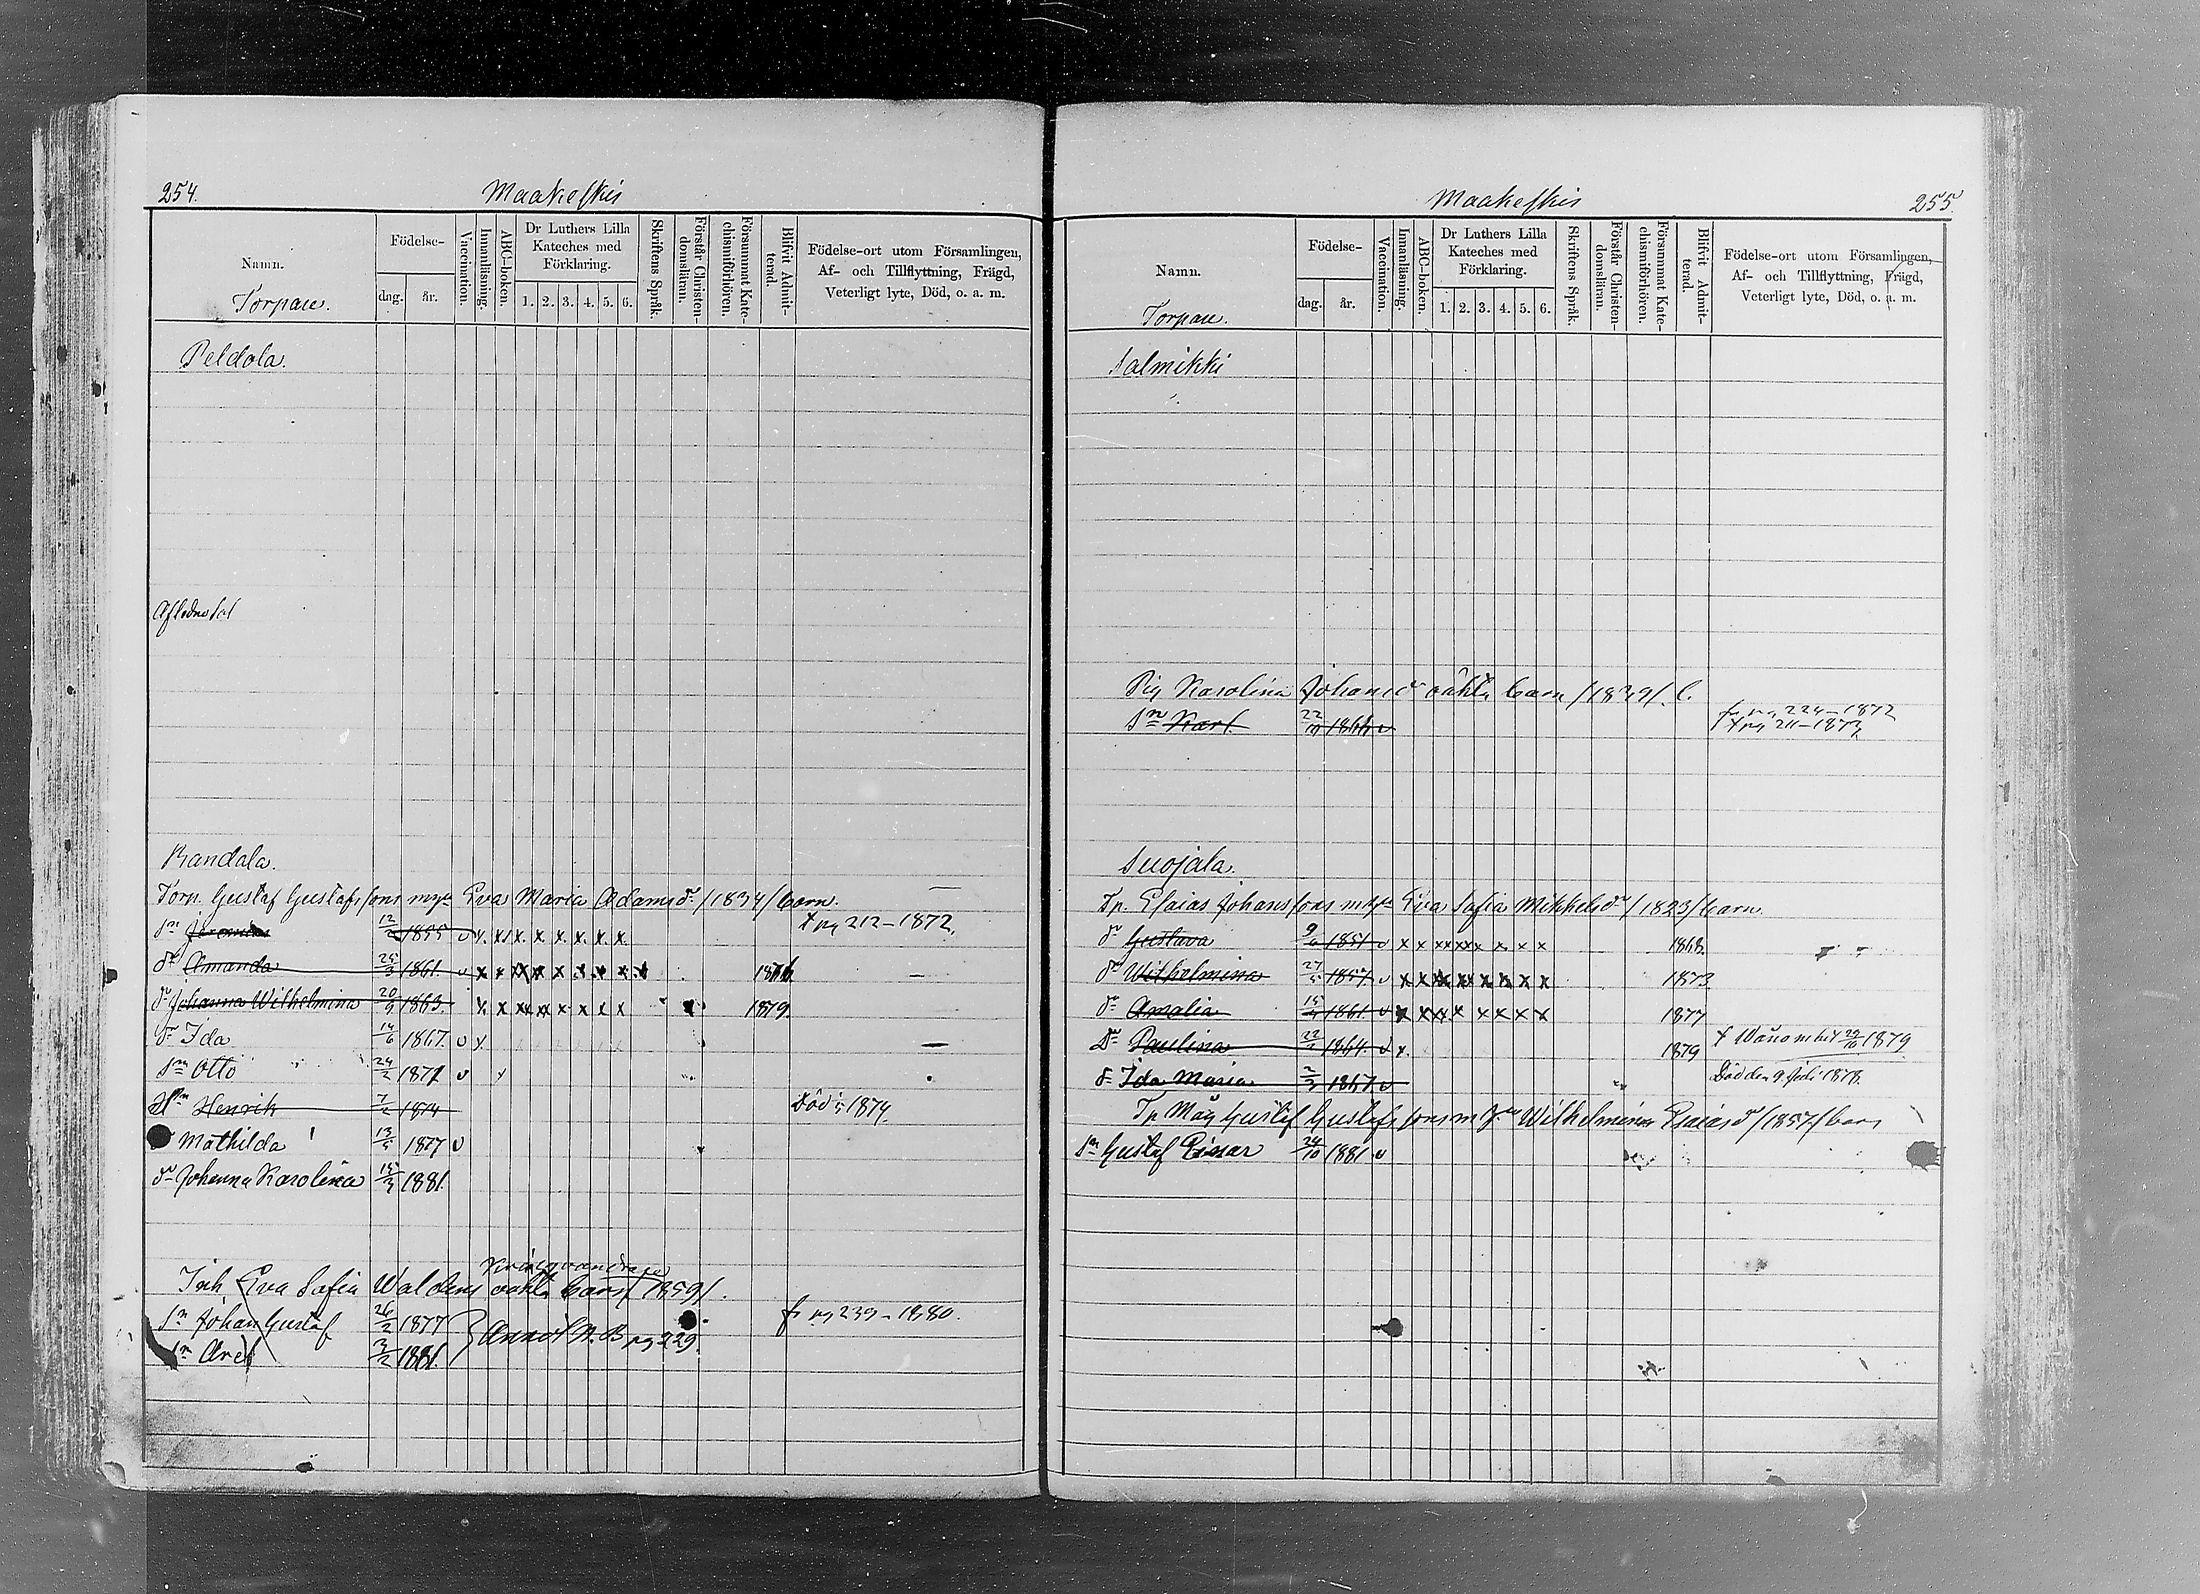 254.
Maakeskis
Namn.
Torpare.
Födelse-
dag.
år.
Vaccination.
Innanläsning.
ABC-boken.
Dr Luthers Lilla
Kateches med
Förklaring.
1. 2. 3. 4. 5. 6.
Skriftens Språk.
Förstår Christen-
domsläran.
Försummat Kate-
chismiförhören.
Blifvit Admit-
terad.
Födelse-ort utom Församlingen,
Af- och Tillflyttning, Frägd,
Veterligt lyte, Död, o. a. m.
Peldola.
Randala.
Torp. Gustaf Gustafssons Eva Maria Adamsdr /1834/ barn.
Sn 12/2 1855 v x. x x. x x. x. x. x. † pg 212-1872.
dr Amanda 25/3 1861. v x x x x x x x x x
dr Johanna Wilhelmina 20/9 1863. x. x x x x x x x 1879.
dr Ida 14/6 1867. v x.
Sn Otto 24/2 1871 v
Sn Henrik 7/2 1874 Död 1874.
Mathilda 13/5 1877 v
dr Johanna Karolina 1881.
Kringvandrare
Inh. Eva Sofia Waldens oäkta barn /1859/.
Sn Johan Gustaf 26/2 1877 fr pg 239-1880.
Sn 3/2 1881. Annot N.B pg 229.
Maakeskis
255.
Namn.
Torpare.
Födelse-
dag.
år.
Vaccination.
Innanläsning.
ABC-boken.
Dr Luthers Lilla
Kateches med
Förklaring.
1. 2. 3. 4. 5. 6.
Skriftens Språk.
Förstår Christen-
domsläran.
Försummat Kate-
chismiförhören.
Blifvit Admit-
terad.
Födelse-ort utom Församlingen,
Af- och Tillflyttning, Frägd,
Veterligt lyte, Död, o. a. m.
Salmikki
Pig Karolina Johansdr oäkta barn /1839/.
Sn Karl 22/10 v fr pg 224-1872
† pg 211-1873
Suojala.
Tp. Esaias Johanssons Eva Sofia Mikkelsdr /1823/ barn.
dr Gustava 1851 v x x x x x x x x x 1868.
dr Wilhelmina 27/5 1857. v x x x x x x x x 1873
dr Amalia 1861 v x x x x x x x x 1877
Dr Paulina 1864. v x. 1879 † 29/10 1879
dr Ida Maria 2/3 1867. v Död den 9 Juli 1878.
Tp Måg Gustaf Gustafssons Wilhelmina Esaiasdr /1857/ barn
Sn Gustaf 24/10 1881 v